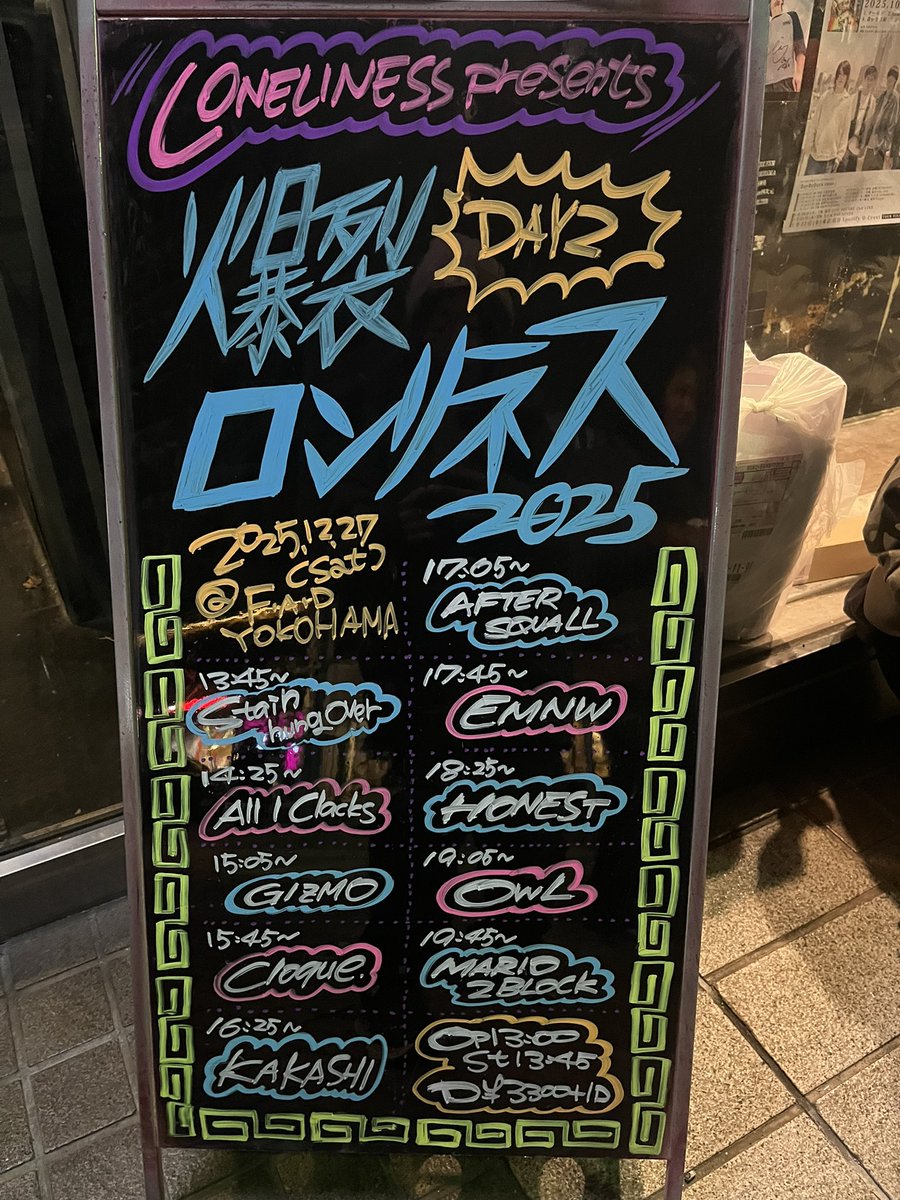 LONELINESS presents
爆裂
DAY2
ロンリネス
2025
2025.12.27
(Sat)
@ F.A.D
YOKOHAMA
13:45~
Stain
hung over
14:25~
All I Clacks
15:05~
GIZMO
15:45~
Cloque.
16:25~
KAKASHI
17:05~
AFTER
SQUALL
17:45~
EMNW
18:25~
HONEST
19:05~
OWL
19:45~
MARIO
2BLOCK
Op13:00
St13:45
D¥3300+1D
2025.10